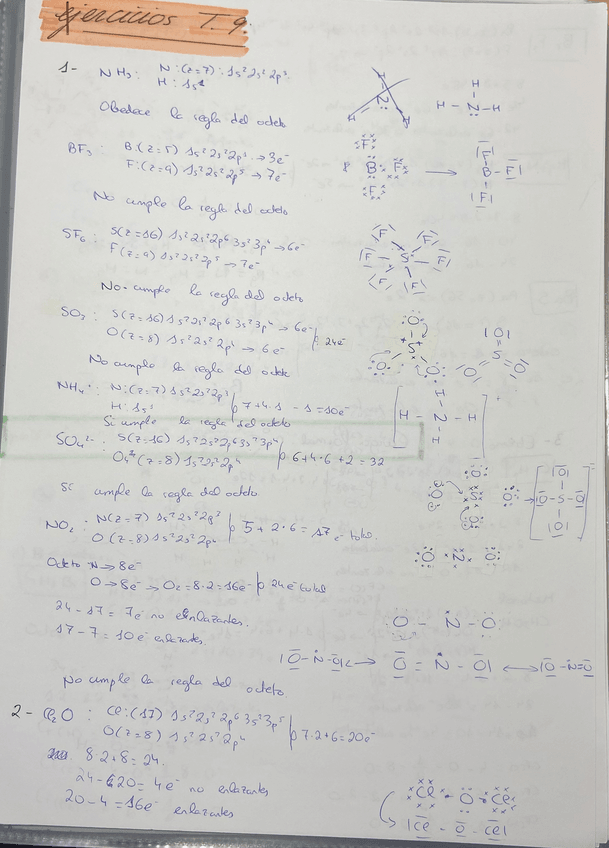 Ejercicios T.9.
1- NH₃: N:(z=7): 1s² 2s² 2p³.
H: 1s¹
Obedece la regla del octeto
BF₃: B:(z=5) 1s² 2s² 2p¹ → 3e⁻
F:(z=9) 1s² 2s² 2p⁵ → 7e⁻
No cumple la regla del octeto
SF₆: S(z=16) 1s² 2s² 2p⁶ 3s² 3p⁴ → 6e⁻
F(z=9) 1s² 2s² 2p⁵ → 7e⁻
No cumple la regla del octeto
SO₃: S(z=16) 1s² 2s² 2p⁶ 3s² 3p⁴ → 6e⁻
O(z=8) 1s² 2s² 2p⁴ → 6e⁻ 24e⁻
No cumple la regla del octeto
NH₄⁺: N:(z=7) 1s² 2s² 2p³
H: 1s¹ 7+4·1-1=10e⁻
Si cumple la regla del octeto
SO₄²⁻: S(z=16) 1s² 2s² 2p⁶ 3s² 3p⁴
(z=8) 1s² 2s² 2p⁴ 6+4·6+2=32
Si cumple la regla del octeto.
NO₂: N(z=7) 1s² 2s² 2p³
O(z=8) 1s² 2s² 2p⁴ 5+2·6=17 e⁻ total.
Octeto N → 8e⁻
O → 8e⁻ → O₂ = 8·2 = 16e⁻ 24e⁻ total
24-17 = 7e⁻ no enlazantes.
17-7 = 10e⁻ enlazantes.
O - N - O
O - N - O → O = N - O ↔ O - N = O
No cumple la regla del octeto
2- Cl₂O: Cl:(17) 1s² 2s² 2p⁶ 3s² 3p⁵
O(z=8) 1s² 2s² 2p⁴ 7·2+6=20e⁻
8·2+8=24.
24-20=4e⁻ no enlazantes
20-4=16e⁻ enlazantes
Cl O Cl
Cl - O - Cl